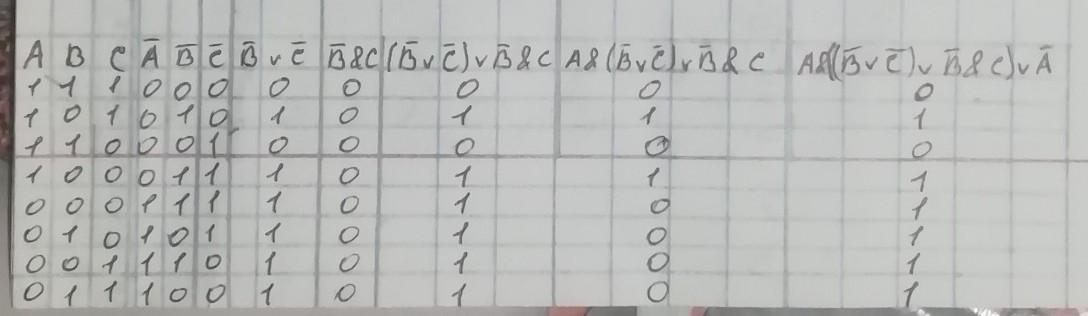 A B C Ā B̄ C̄ B̄ ∨ C̄ B̄&C (B̄∨C̄)∨B̄&C A&(B̄∨C̄)∨B̄&C A&((B̄∨C̄)∨B̄&C)∨Ā
1 1 1 0 0 0 0 0 0 0 0
1 0 1 0 1 0 1 0 1 1 1
1 1 0 0 0 1 0 0 0 0 0
1 0 0 0 1 1 1 0 1 1 1
0 0 0 1 1 1 1 0 1 0 1
0 1 0 1 0 1 1 0 1 0 1
0 0 1 1 1 0 1 0 1 0 1
0 1 1 1 0 0 1 0 1 0 1